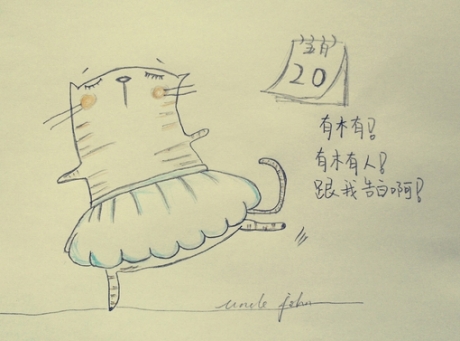 五月
20
有木有!
有木有人!
跟我告白啊!
uncle john